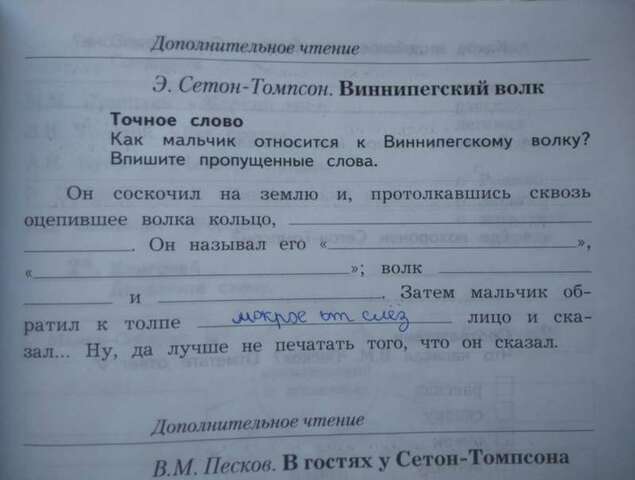 Дополнительное чтение
Э. Сетон-Томпсон. Виннипегский волк
Точное слово
Как мальчик относится к Виннипегскому волку?
Впишите пропущенные слова.
Он соскочил на землю и, протолкавшись сквозь
оцепившее волка кольцо, ____________
____________. Он называл его «____________»,
«____________»; волк ____________
____________ и ____________. Затем мальчик об-
ратил к толпе мокрое от слёз лицо и ска-
зал... Ну, да лучше не печатать того, что он сказал.
Дополнительное чтение
В.М. Песков. В гостях у Сетон-Томпсона